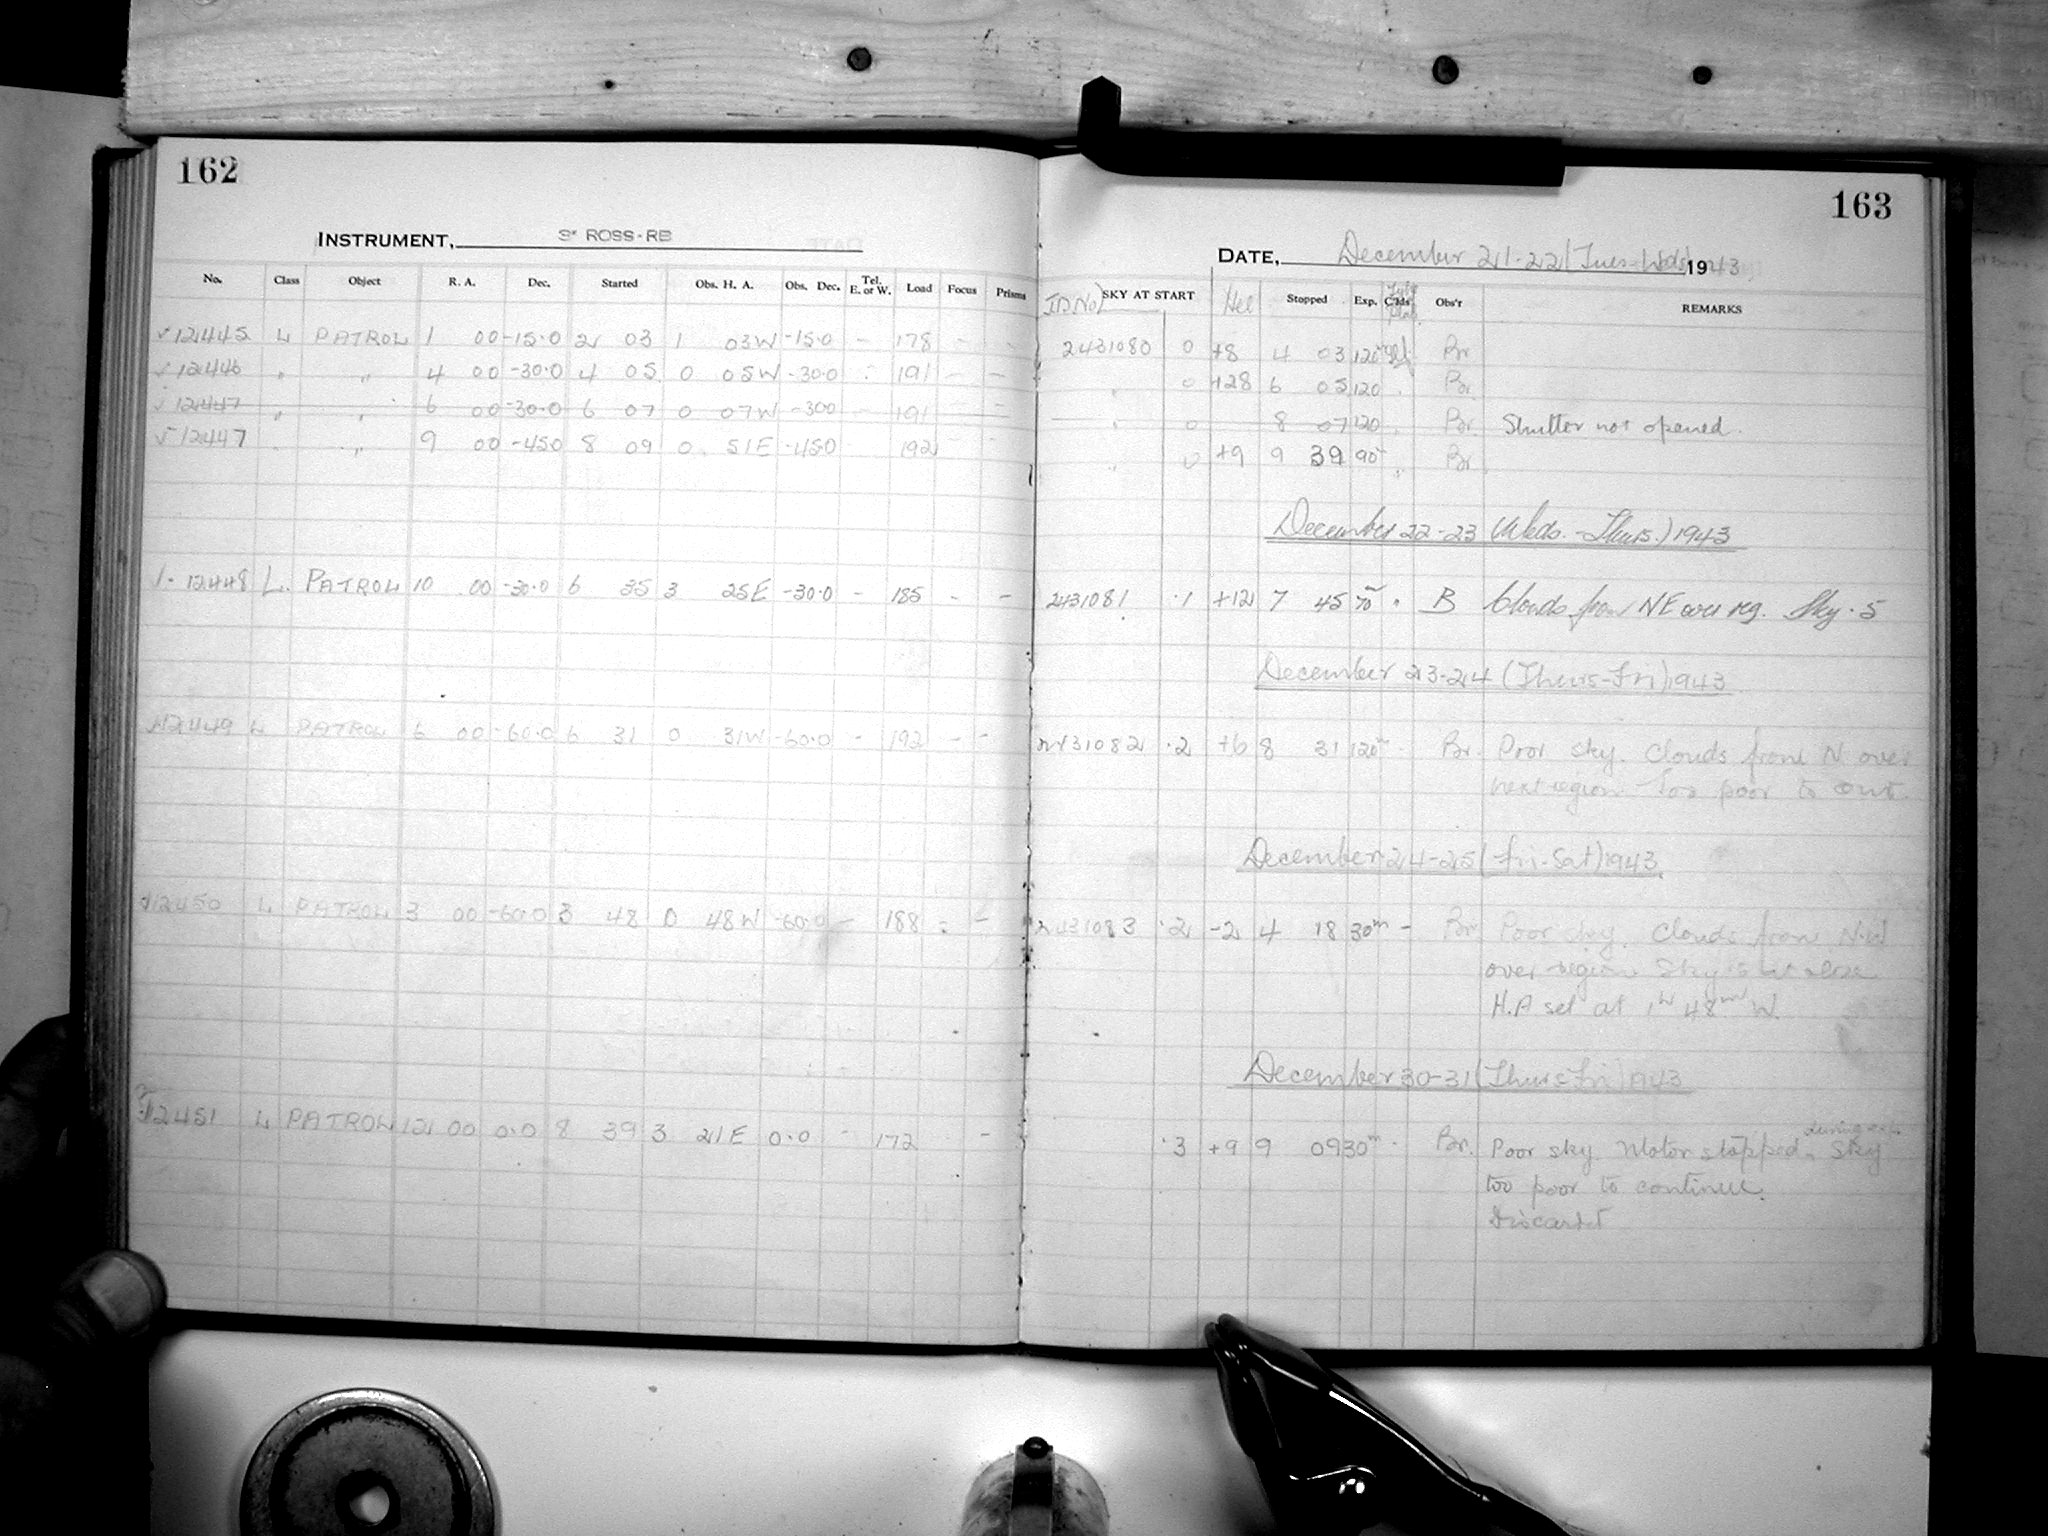 162
INSTRUMENT, 3" ROSS-RB
No. Class Object R. A. Dec. Started Obs. H. A. Obs. Dec. Tel. E. or W. Load Focus Prisms
12445 L PATROL 1 00 -15.0 2 03 1 03W -15.0 - 178 - -
12446 " " 4 00 -30.0 4 05 0 05W -30.0 - 191 - -
12447 " " 6 00 -30.0 6 07 0 07W -300 - 191 - -
12447 " 9 00 -450 8 09 0 51E -450 192
12448 L. PATROL 10 00 -30.0 6 35 3 25E -30.0 - 185 - -
12449 L PATROL 6 00 -60.0 6 31 0 31W -60.0 - 192 - -
12450 L PATROL 3 00 -60.0 3 48 0 48W -60.0 - 188 - -
12451 L PATROL 12 00 0.0 8 39 3 21E 0.0 - 172 -
163
DATE, December 21-22 (Tues-Weds) 1943
J.D. No. SKY AT START Hel Stopped Exp. Obs'r REMARKS
2431080 0 +8 4 03 120m Br
" 0 +28 6 05 120 Br
" 0 8 07 120 Br. Shutter not opened.
" 0 +9 9 39 90 Br
December 22-23 (Weds.-Thurs.) 1943
2431081 .1 +12 7 45 70m " B Clouds from NE over reg. Sky .5
December 23-24 (Thurs-Fri) 1943
2431082 .2 +6 8 31 120m - Br. Poor sky. Clouds from N over
next region. Too poor to cont.
December 24-25 (Fri-Sat) 1943
2431083 .2 -2 4 18 30m - Br Poor sky. Clouds from NW
over region Sky .5 at close
H.A set at 1h 48m W.
December 30-31 (Thurs-Fri) 1943
.3 +9 9 09 30m - Br. Poor sky. Motor stopped during exp. Sky
too poor to continue.
Discarded